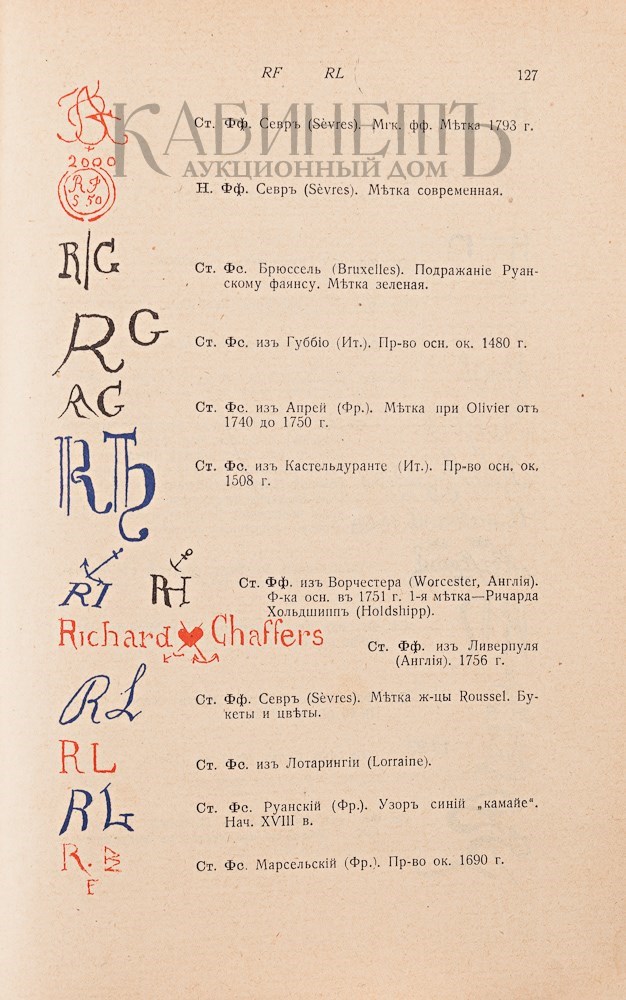 RF RL 127
КАБИНЕТЪ
АУКЦИОННЫЙ ДОМ
Ст. Фф. Севръ (Sèvres).—Мгк. фф. Мѣтка 1793 г.
2000
RF
S 50
Н. Фф. Севръ (Sèvres). Мѣтка современная.
R|G
Ст. Фс. Брюссель (Bruxelles). Подражаніе Руан-
скому фаянсу. Мѣтка зеленая.
RG
Ст. Фс. изъ Губбіо (Ит.). Пр-во осн. ок. 1480 г.
AG
Ст. Фс. изъ Апрей (Фр.). Мѣтка при Olivier отъ
1740 до 1750 г.
Ст. Фс. изъ Кастельдуранте (Ит.). Пр-во осн. ок.
1508 г.
RI RH
Ст. Фф. изъ Ворчестера (Worcester, Англія).
Ф-ка осн. въ 1751 г. 1-я мѣтка—Ричарда
Хольдшиппъ (Holdshipp).
Richard Chaffers
Ст. Фф. изъ Ливерпуля
(Англія). 1756 г.
RL
Ст. Фф. Севръ (Sèvres). Мѣтка ж-цы Roussel. Бу-
кеты и цвѣты.
RL
Ст. Фс. изъ Лотарингіи (Lorraine).
RL
Ст. Фс. Руанскій (Фр.). Узоръ синій „камайе“.
Нач. XVIII в.
R.
F
Ст. Фс. Марсельскій (Фр.). Пр-во ок. 1690 г.